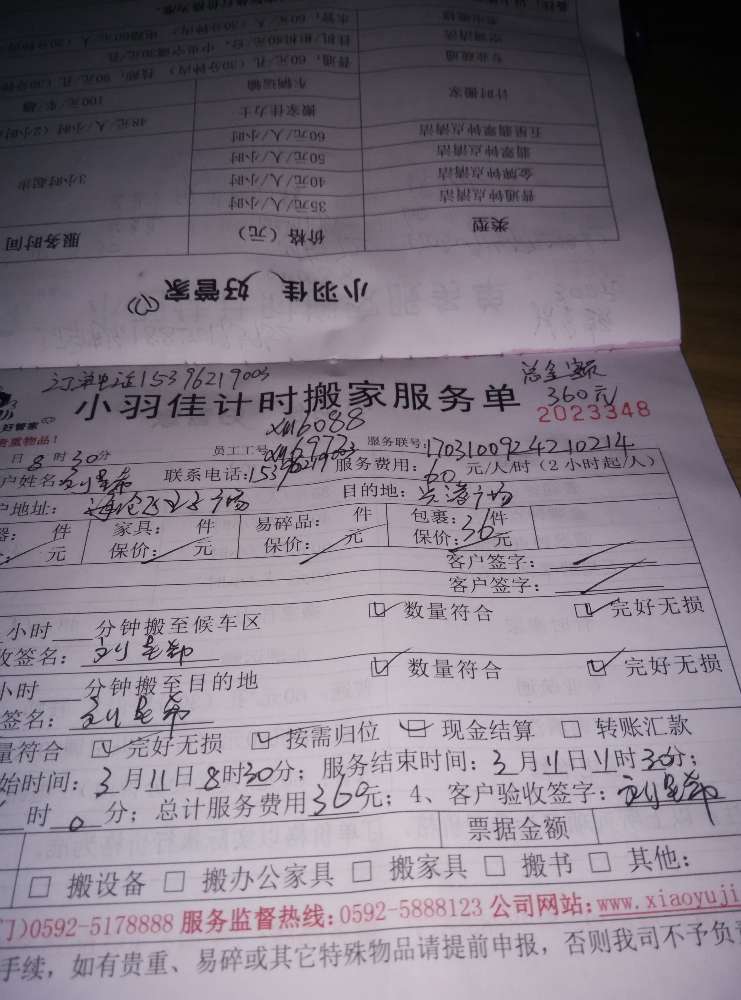 类型 价格（元） 服务时间
普通钟点清洁 35元/人/小时
金牌钟点清洁 40元/人/小时 3小时起步
翡翠钟点清洁 50元/人/小时
五星翡翠钟点清洁 60元/人/小时
计时搬家 搬家佳力士 48元/人/小时（2小时
车辆运输 100元/车/趟
专业疏通 普通，60元/孔（30分钟内）
空调清洗
小羽佳 好管家
订单电话15396219003
总金额
360元
好管家
小羽佳计时搬家服务单
2023348
贵重物品！
xm6088
日8时30分 员工工号：xm6972 服务联号：1703100924210214
户姓名： 联系电话：15396219003 服务费用：60元/人/时（2小时起/人）
户地址： 目的地：
件 家具： 件 易碎品： 件 包裹：36件
元 保价： 元 保价： 元 保价： 元
客户签字：
客户签字：
小时 分钟搬至候车区 数量符合 完好无损
收签名：
小时 分钟搬至目的地 数量符合 完好无损
签名：
量符合 完好无损 按需归位 现金结算 转账汇款
始时间：3月11日8时30分；服务结束时间：3月11日11时30分；
时0分；总计服务费用360元；4、客户验收签字：
票据金额
搬设备 搬办公家具 搬家具 搬书 其他：
门)0592-5178888 服务监督热线：0592-5888123 公司网站：www.xiaoyuji
手续，如有贵重、易碎或其它特殊物品请提前申报，否则我司不予负